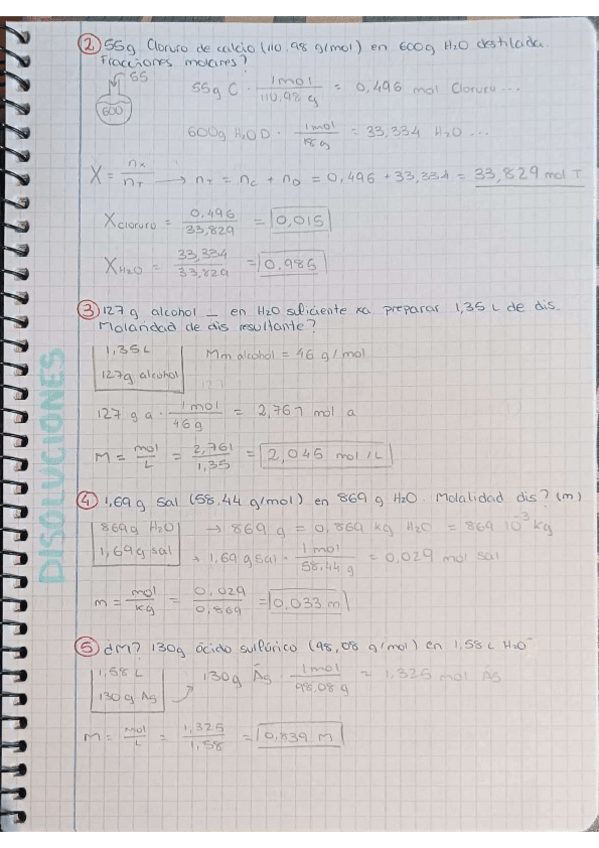 ② 55g Cloruro de calcio (110,98 g/mol) en 600g H2O destilada.
Fracciones molares?
55
600
55g C · 1mol / 110,98 g = 0,496 mol Cloruro ...
600g H2O D · 1mol / 18 g = 33,334 H2O ...
X = nx / nT → nT = nC + nD = 0,496 + 33,334 = 33,829 mol T
Xcloruro = 0,496 / 33,829 = 0,015
XH2O = 33,334 / 33,829 = 0,985
③ 127g alcohol _ en H2O suficiente xa preparar 1,35 L de dis.
Molaridad de dis resultante?
1,35 L
127g alcohol
Mm alcohol = 46 g/mol
127 g a · 1mol / 46 g = 2,761 mol a
M = mol / L = 2,761 / 1,35 = 2,045 mol/L
DISOLUCIONES
④ 1,69 g sal (58,44 g/mol) en 869 g H2O. Molalidad dis? (m)
869g H2O
1,69 g sal
→ 869 g = 0,869 kg H2O = 869 10⁻³ kg
→ 1,69 g sal · 1 mol / 58,44 g = 0,029 mol sal
m = mol / kg = 0,029 / 0,869 = 0,033 m
⑤ ¿M? 130g ácido sulfúrico (98,08 g/mol) en 1,58 L H2O
1,58 L
130 g Ás
130g Ás 1mol / 98,08 g = 1,325 mol Ás
M = mol / L = 1,325 / 1,58 = 0,839 M